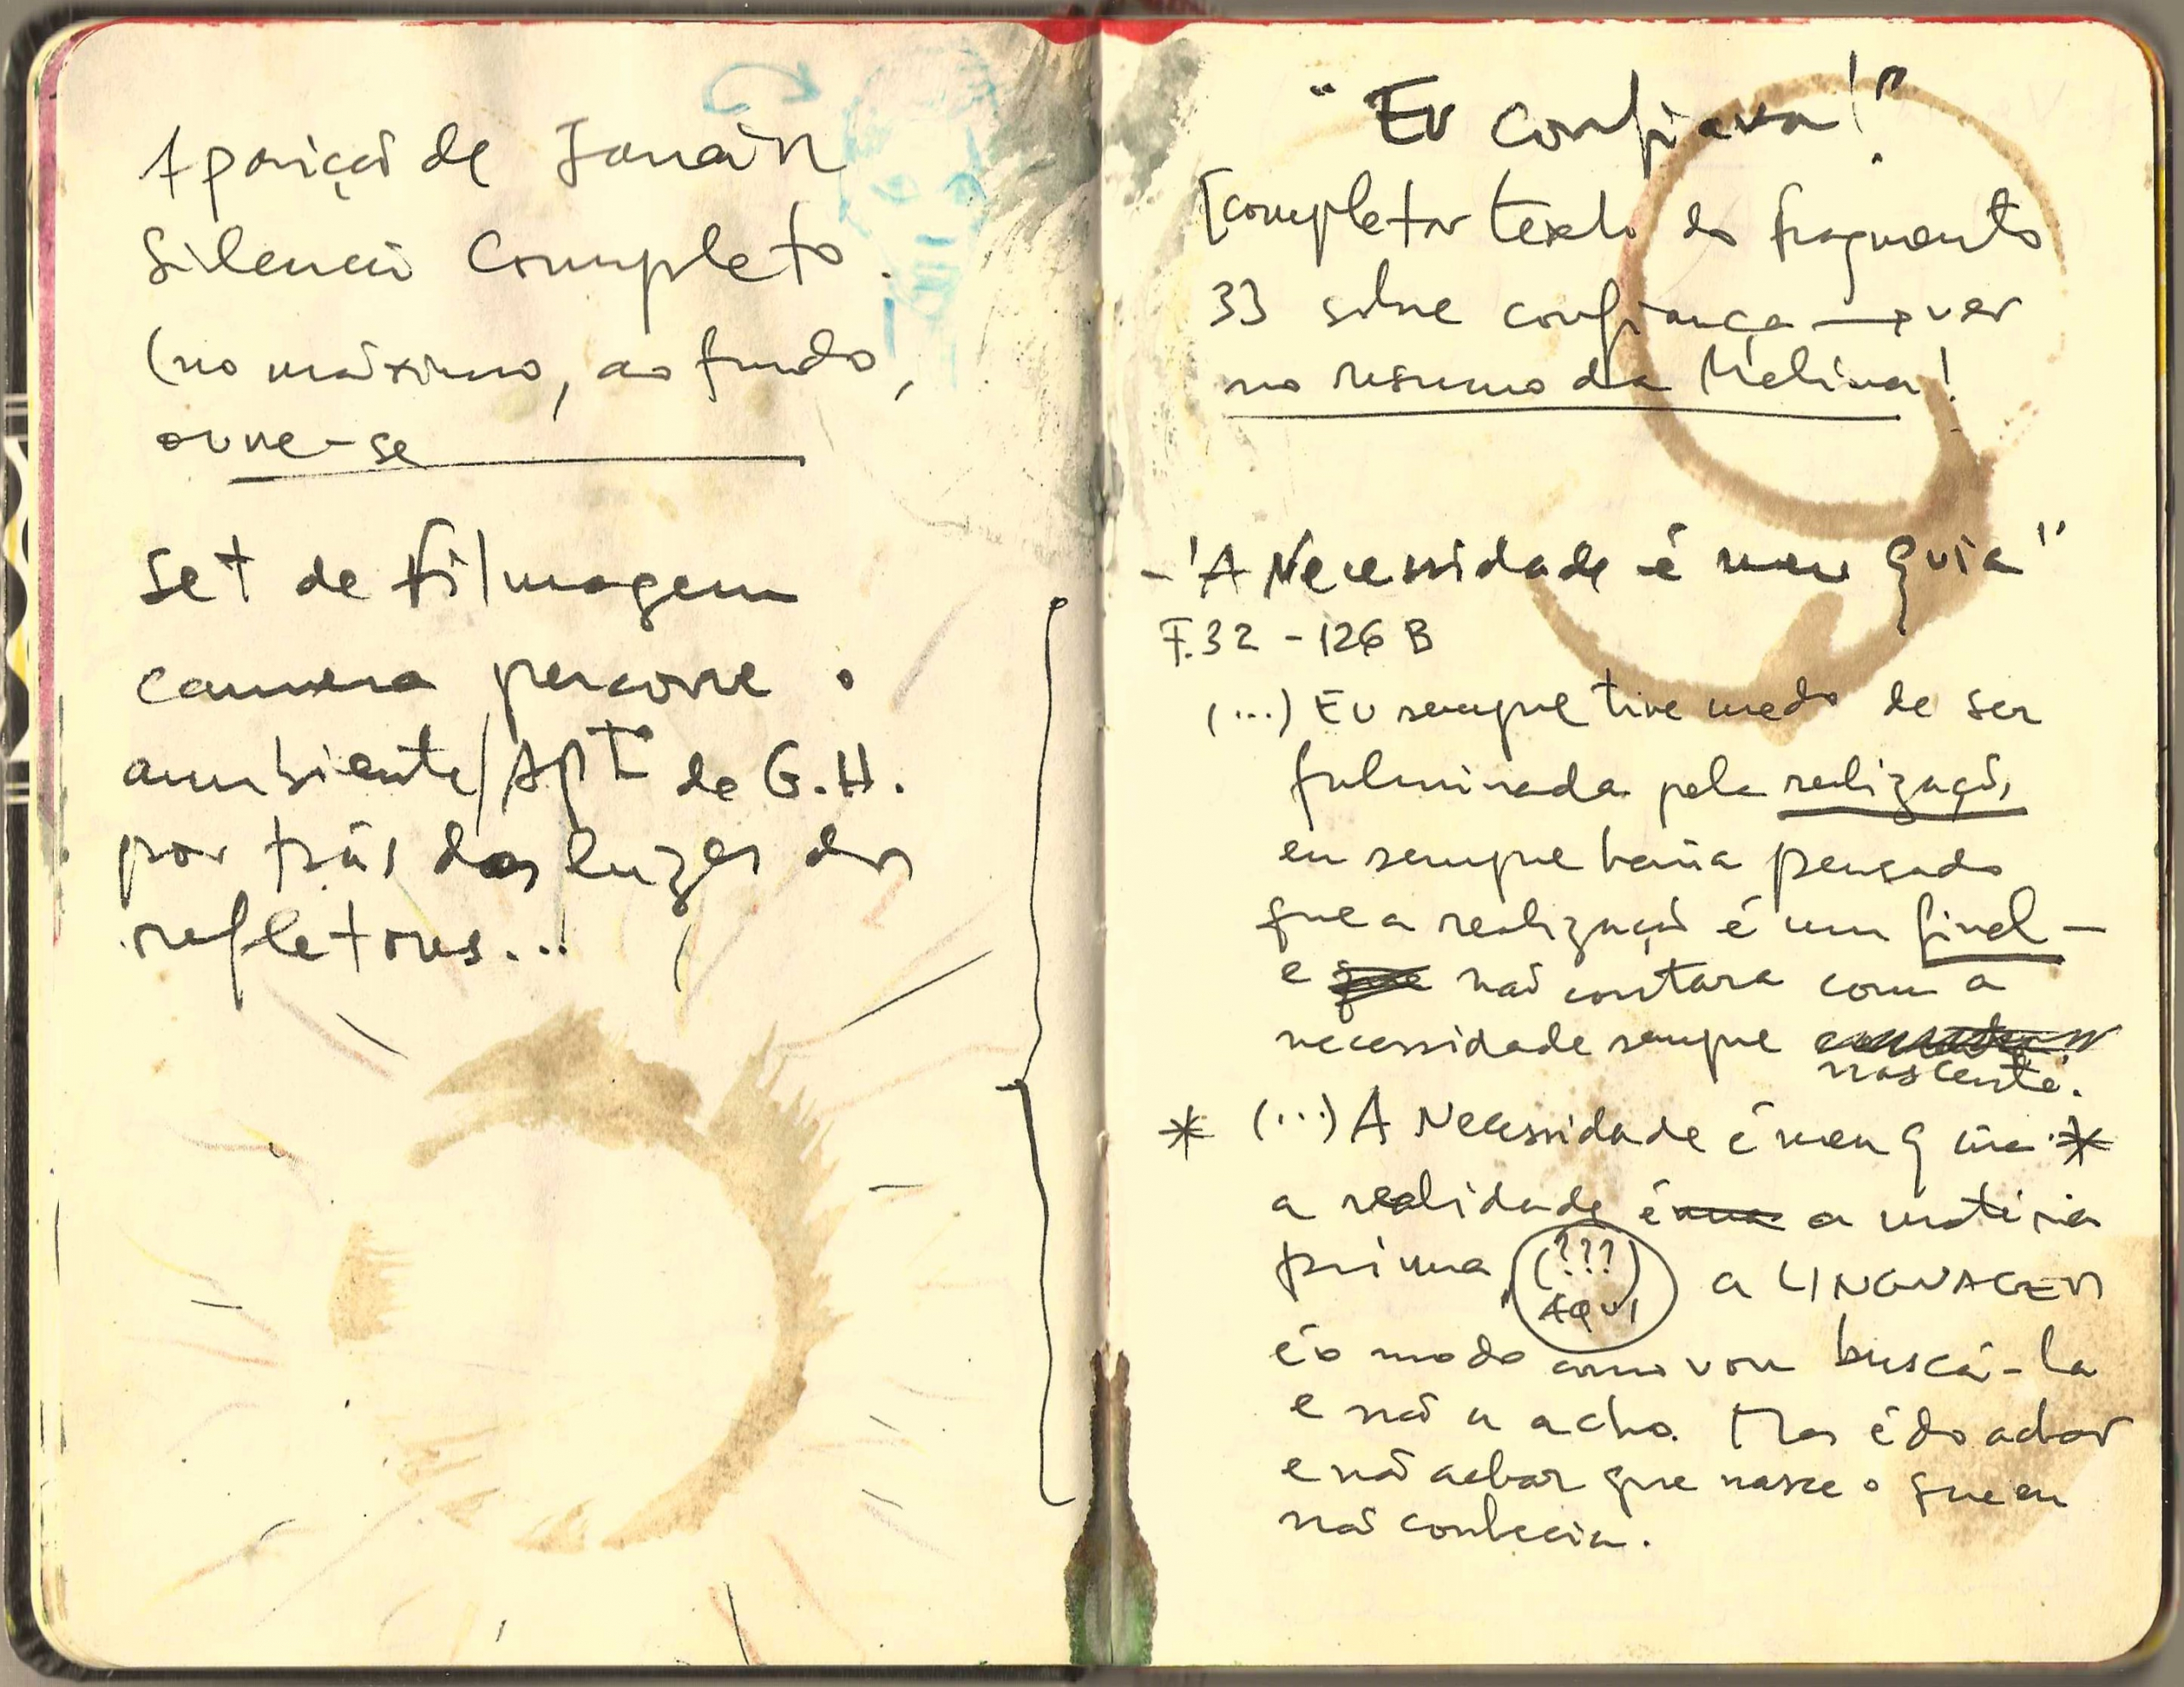 Aparição de Janair
Silencio Completo.
(no máximo, ao fundo,
ouve-se
set de filmagem
camera percorre o
ambiente/APTº de G.H.
por trás das luzes dos
refletores...
"Eu confiava!"
[completar texto do fragmento
33 sobre confiança → ver
no resumo da Melina!
- "A Necessidade é meu guia"
F.32 - 126 B
(...) Eu sempre tive medo de ser
fulminada pela realização,
eu sempre havia pensado
que a realização é um final -
e que não contara com a
necessidade sempre
nascente.
* (...) A Necessidade é meu guia. *
a realidade é a matéria
prima, (???) a LINGUAGEM
AQUI
é o modo como vou buscá-la
e não a acho. Mas é do achar
e não achar que nasce o que eu
não conhecia.